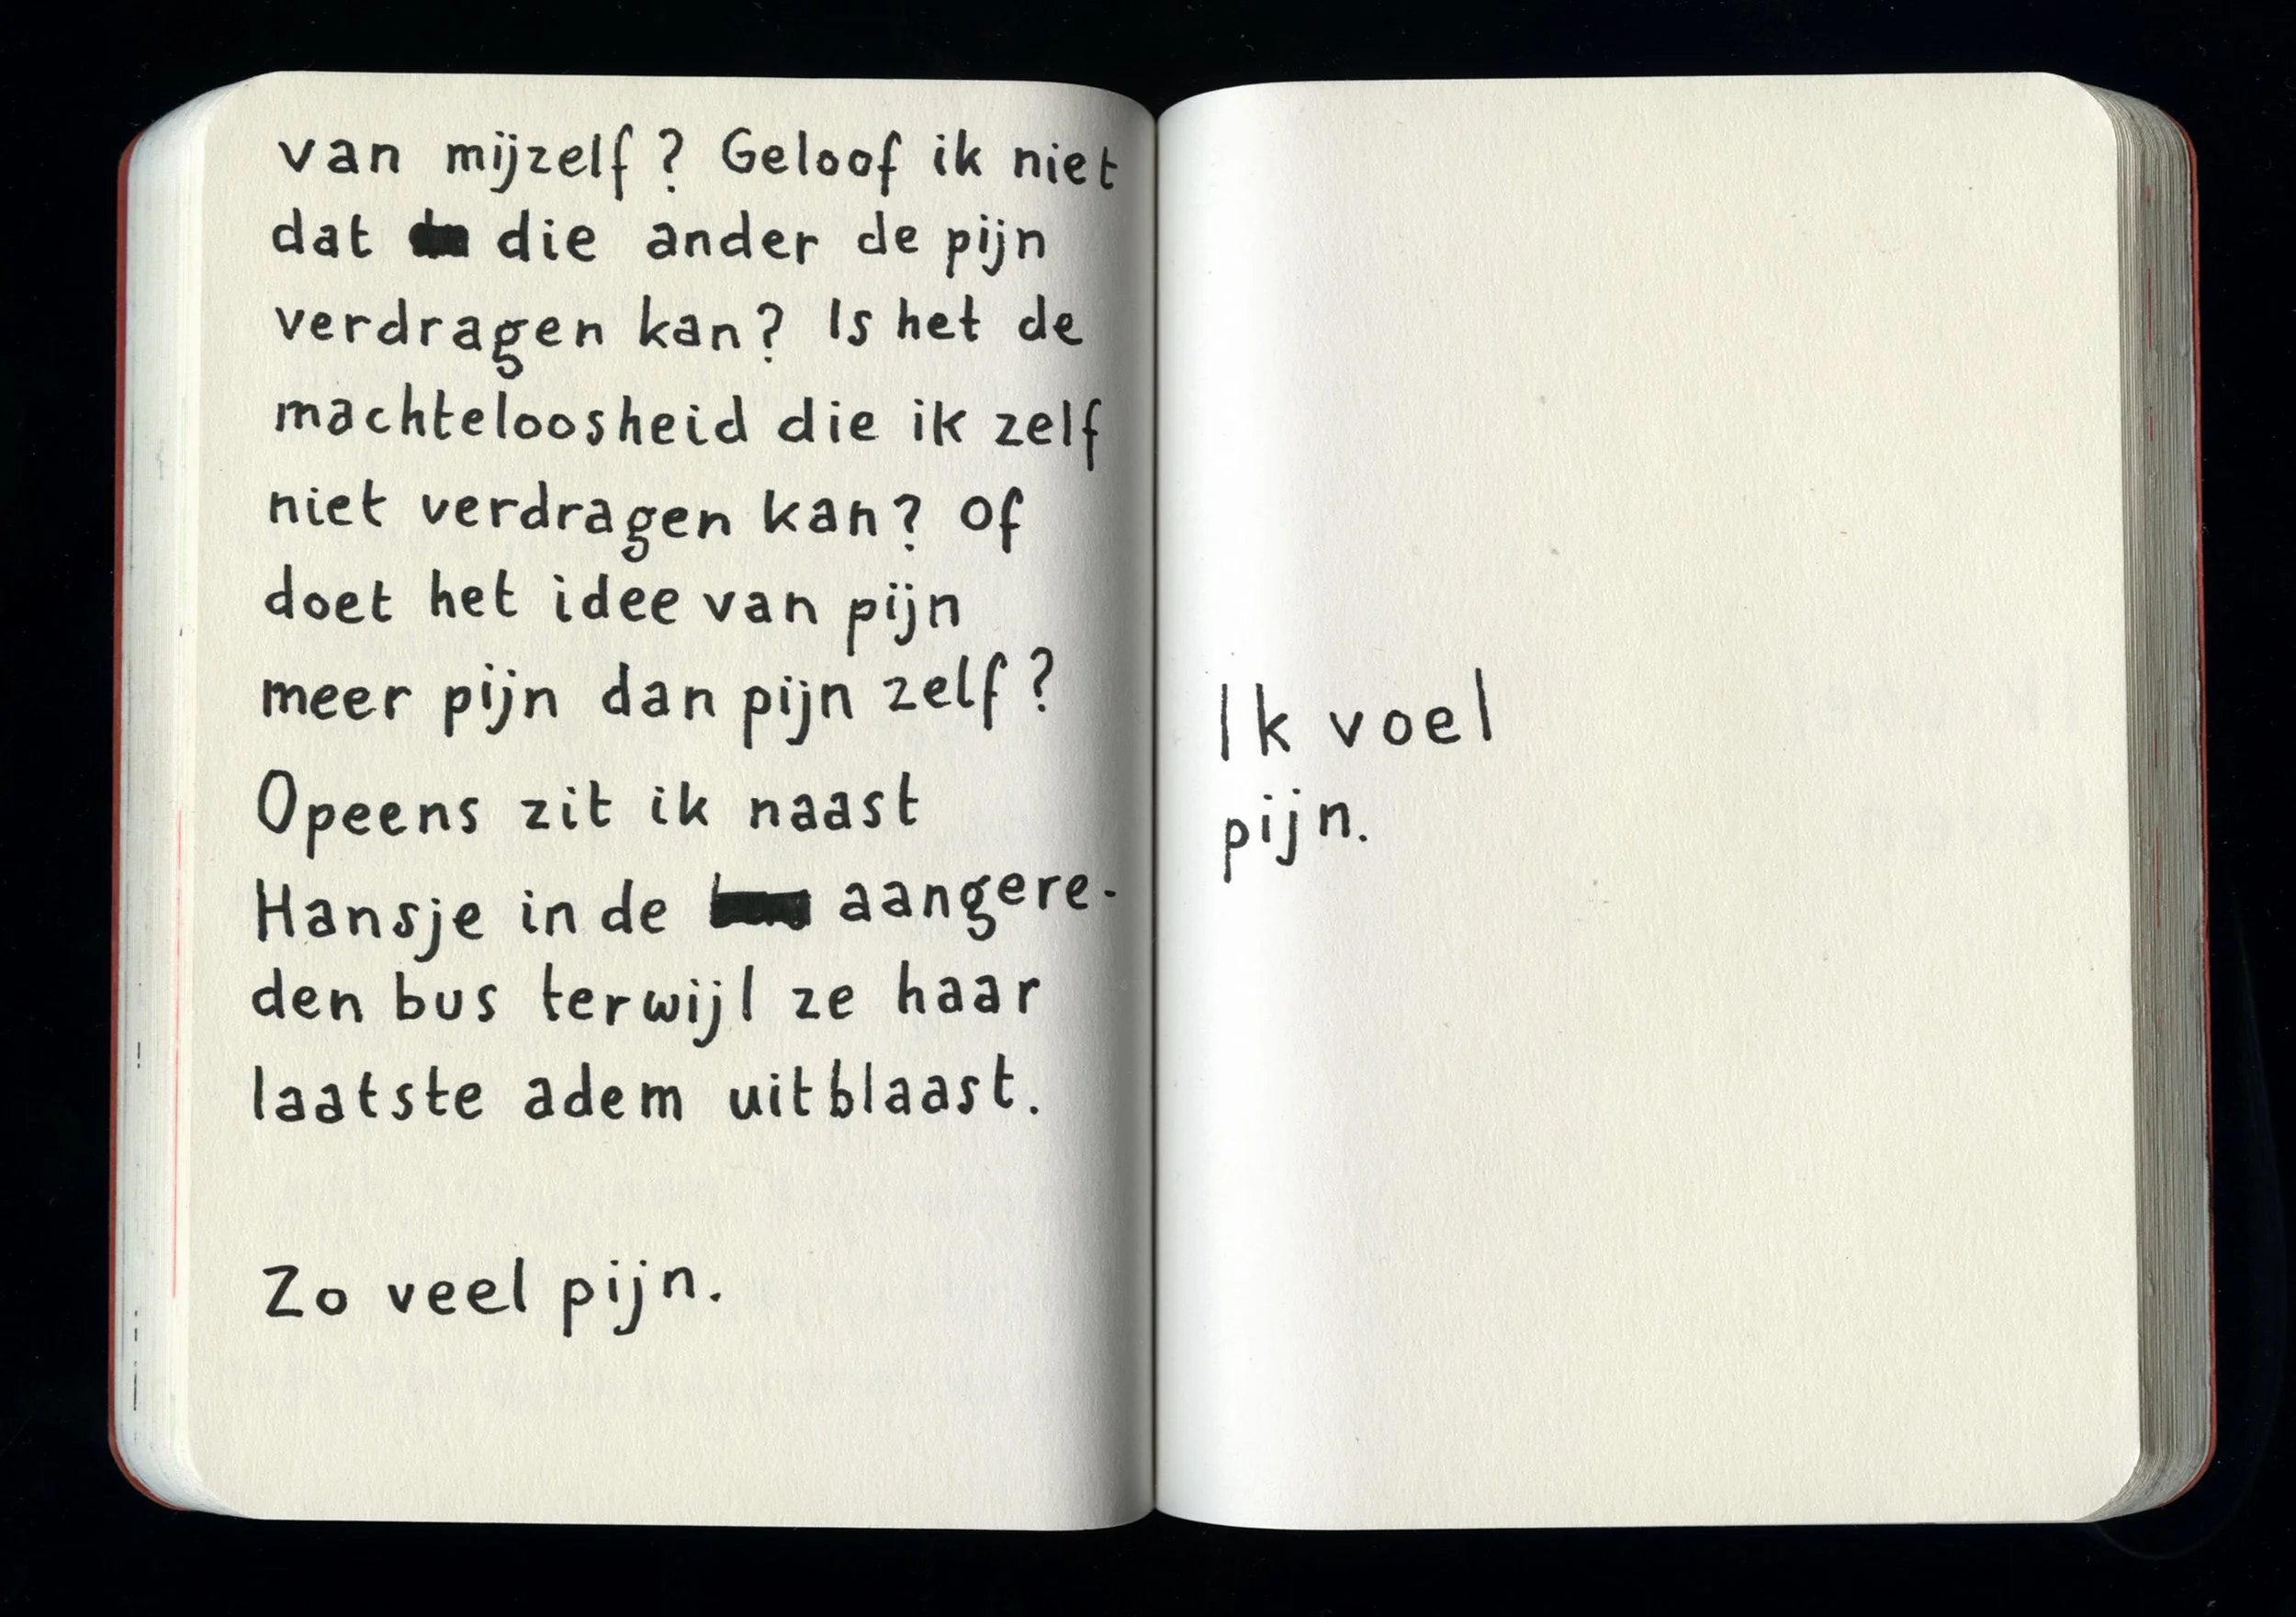 van mijzelf? Geloof ik niet
dat die ander de pijn
verdragen kan? Is het de
machteloosheid die ik zelf
niet verdragen kan? Of
doet het idee van pijn
meer pijn dan pijn zelf?
Opeens zit ik naast
Hansje in de aangere-
den bus terwijl ze haar
laatste adem uitblaast.
Zo veel pijn.
Ik voel
pijn.